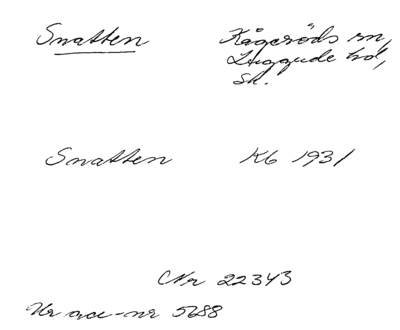 Snatten Kågeröds sn,
Luggude hd,
Sk.
Snatten Kb 1931
CNr 22343
Ur acc-nr 5688